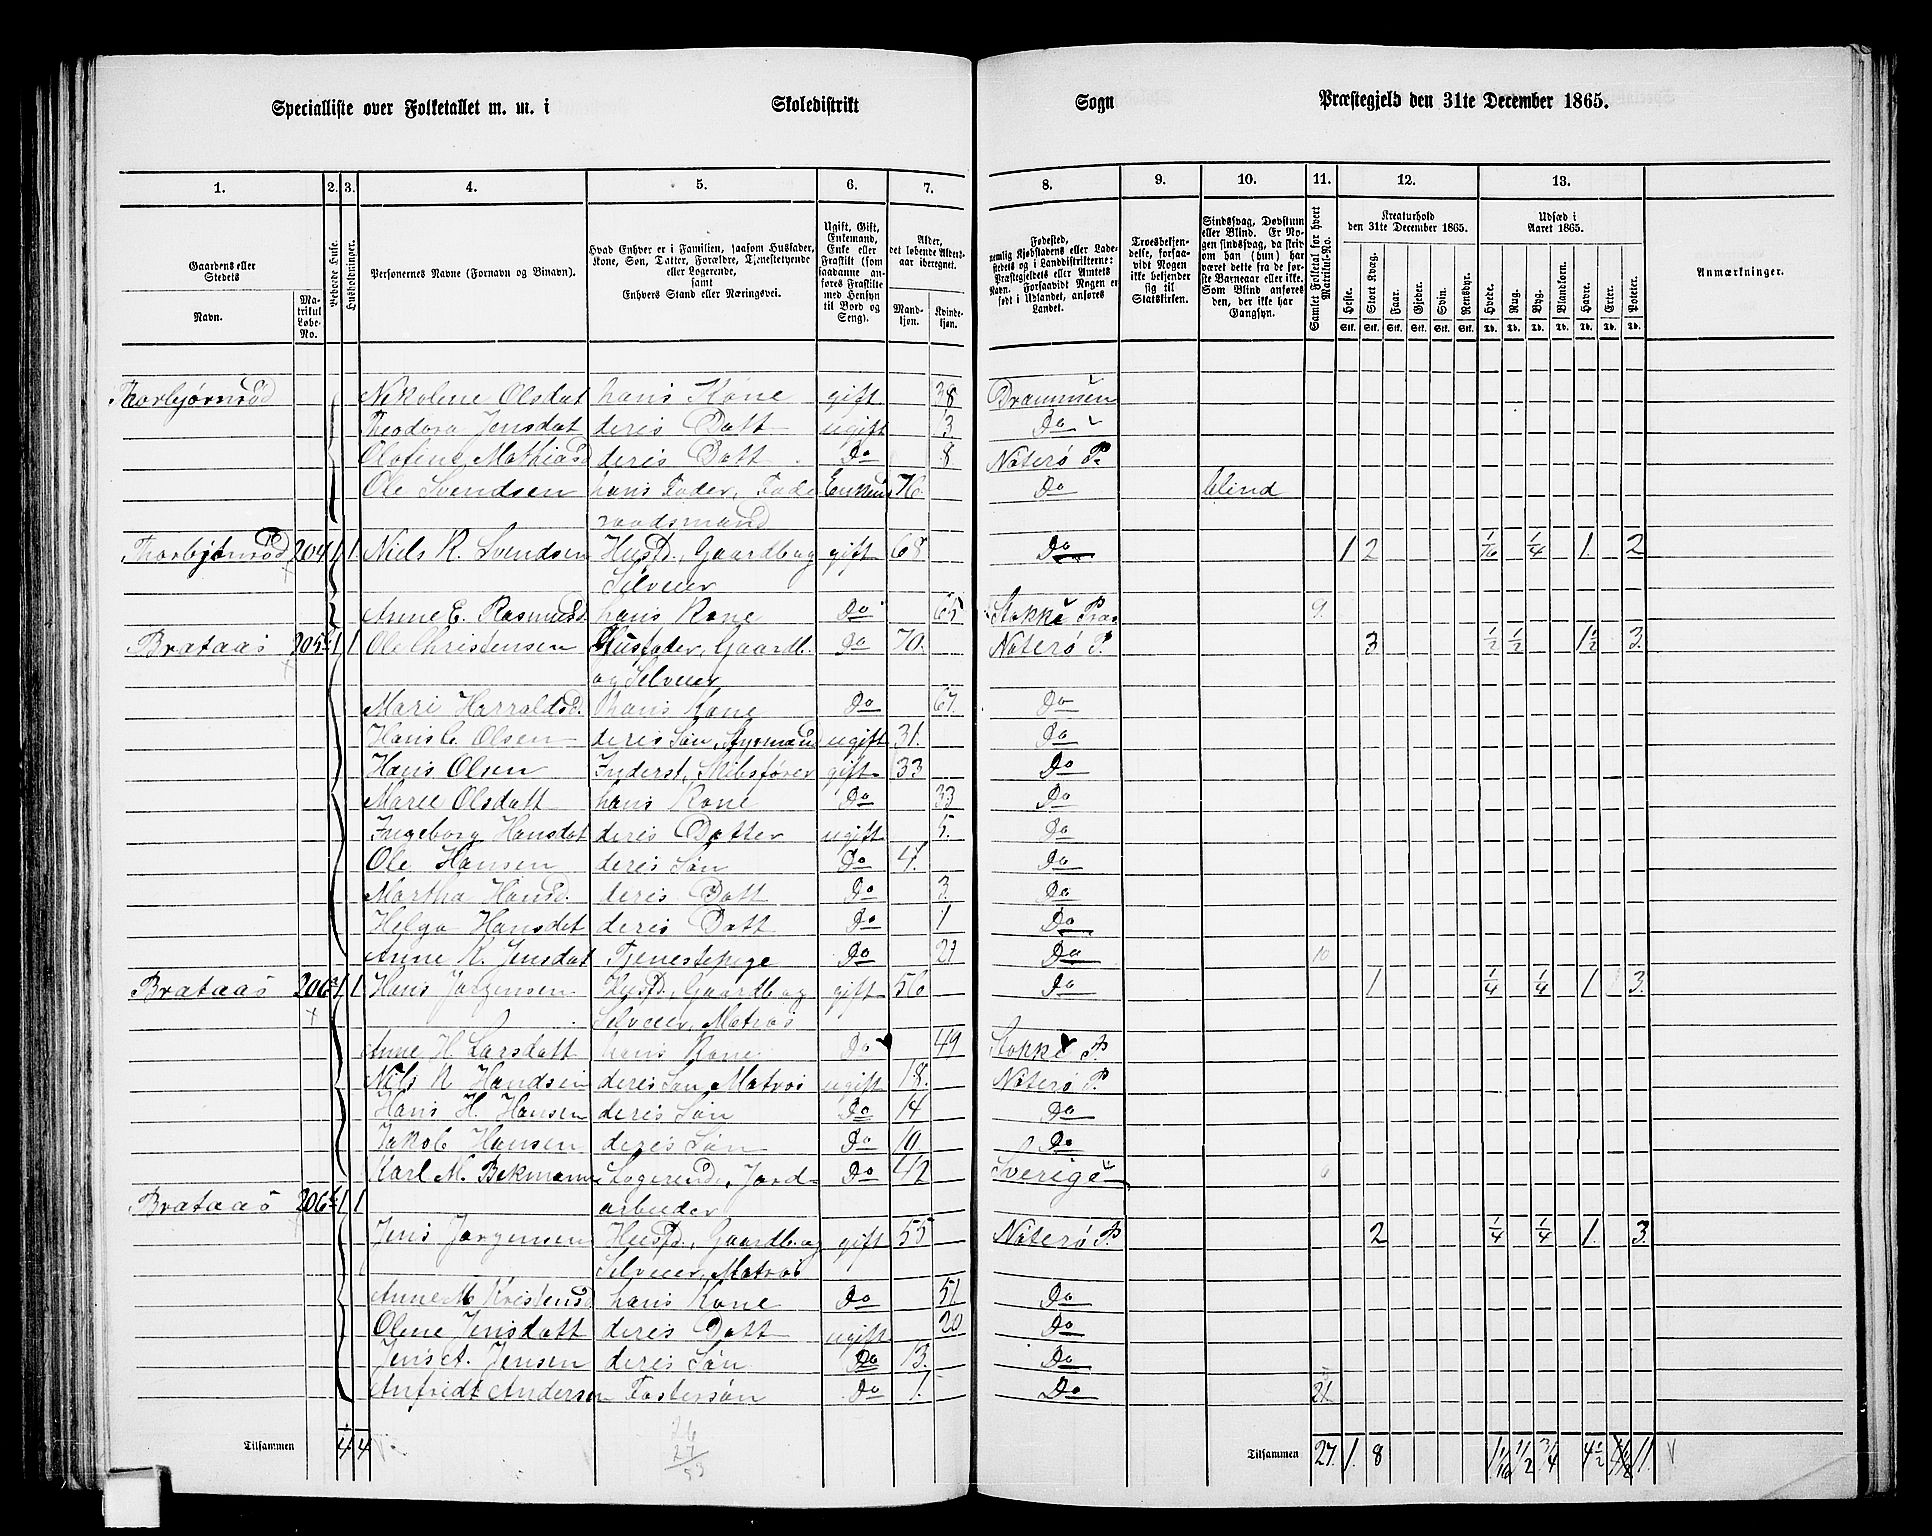 Specialliste over Folketallet m. m. i Skoledistrikt Sogn Præstegjeld den 31te December 1865.
1. 2. 3. 4. 5. 6. 7. 8. 9. 10. 11. 12. 13.
Gaardens eller Stedets
Navn.
Matrikul Løbe-No.
Beboede Huse.
Husholdninger.
Personernes Navne (Fornavn og Binavn).
Hvad Enhver er i Familien, saasom Husfader,
Kone, Søn, Datter, Forældre, Tjenestetyende
eller Logerende,
samt
Enhvers Stand eller Næringsvei.
Ugift, Gift,
Enkemand,
Enke eller
Fraskilt (som
saadanne an-
føres Fraskilte
med Hensyn
til Bord og
Seng).
Alder,
det løbende Alders-
aar iberegnet.
Mand-
kjøn.
Kvinde-
kjøn.
Fødested,
nemlig Kjøbstadens eller Lade-
stedets og i Landdistrikterne:
Præstegjeldets eller Amtets
Navn. Forsaavidt Nogen er
født i Udlandet, anføres
Landet.
Troesbekjen-
delse, forsaa-
vidt Nogen
ikke bekjender
sig til
Statskirken.
Sindssvag, Døvstum
eller Blind. Er No-
gen sindssvag, da skriv
om han (hun) har
været dette fra de før-
ste Barneaar eller ikke.
Som Blind anføres
den, der ikke har
Gangsyn.
Samlet Folketal for hvert Matrikul-No.
Kreaturhold
den 31te December 1865.
Heste. Stort Kvæg. Faar. Gjeder. Svin. Rensdyr.
Stk. Stk. Stk. Stk. Stk. Stk.
Udsæd i
Aaret 1865.
Hvede. Rug. Byg. Blandkorn. Havre. Erter. Poteter.
Td. Td. Td. Td. Td. Td. Td.
Anmærkninger.
Thorbjørnsrød Nekolene Olsdat hans Kone gift 38 Drammen
Theodora Jensdat deris Datt ugift 3 Do
Olofine Mathiasd deris Datt Do 8 Nøterø P.
Ole Svendsen hans Fader, Fade Enkem 76. Do blind
raadsmand
Thorbjønsrød 204 1 1 Niels R. Svendsen Husfd., Gaardb og gift 68 Do 1 2 1/16 1/4 1. 2
Selveier
Anne E. Rasmusd. hans Kone Do 65 Stokke Præs 9
Brataas 205 1 1 Ole Christensen Husfader, Gaardb. Do 70. Nøterø P. 3 1/2 1/2 1 1/2 3.
og Selveier
Mari Harraldsd. hans Kone Do 67. Do
Hans C. Olsen deris Søn, Styrmand ugift 31. Do
Hans Olsen Inderst, Skibsfører gift 33 Do
Maree Olsdatt hans Kone Do 33 Do
Ingeborg Hansdat deris Datter ugift 5. Do
Ole Hansen deris Søn Do 4. Do
Martha Hansd. deris Datt Do 3. Do
Helga Hansdat deris Datt Do 1 Do
Anne K. Jensdat Tjenestepige Do 21 Do 10
Brataas 206 1 1 Hans Jørgensen Husfd., Gaardb og gift 56 Do 1 1/4 1/4 1 3.
Selveier, Matros
Anne H. Larsdatt hans Kone Do 49 Stokke P.
Nils R Handsen deris Søn, Matros ugift 18. Nøterø P.
Hans H. Hansen deris Søn Do 14 Do
Jakob Hansen deris Søn Do 10 Do
Karl M. Bekmann Logerend., Jord- Do 42 Sverige 6
Brataas 206 1 1 arbeider
Jens Jørgensen Husfd., Gaardb. og gift 55 Nøterø P. 2 1/4 1/4 1. 3.
Selveier, Matros
Anne M. Kristensd hans Kone Do 51 Do
Olene Jensdatt deris Datt ugift 20 Do
Jens A. Jensen deris Søn Do 13. Do
Anfridt Andersen Fostersøn Do 1. Do
Tilsammen 4 4 26
27
53
Tilsammen 27. 1. 8 1 1/16 1/2 3/4 4 1/2 11.